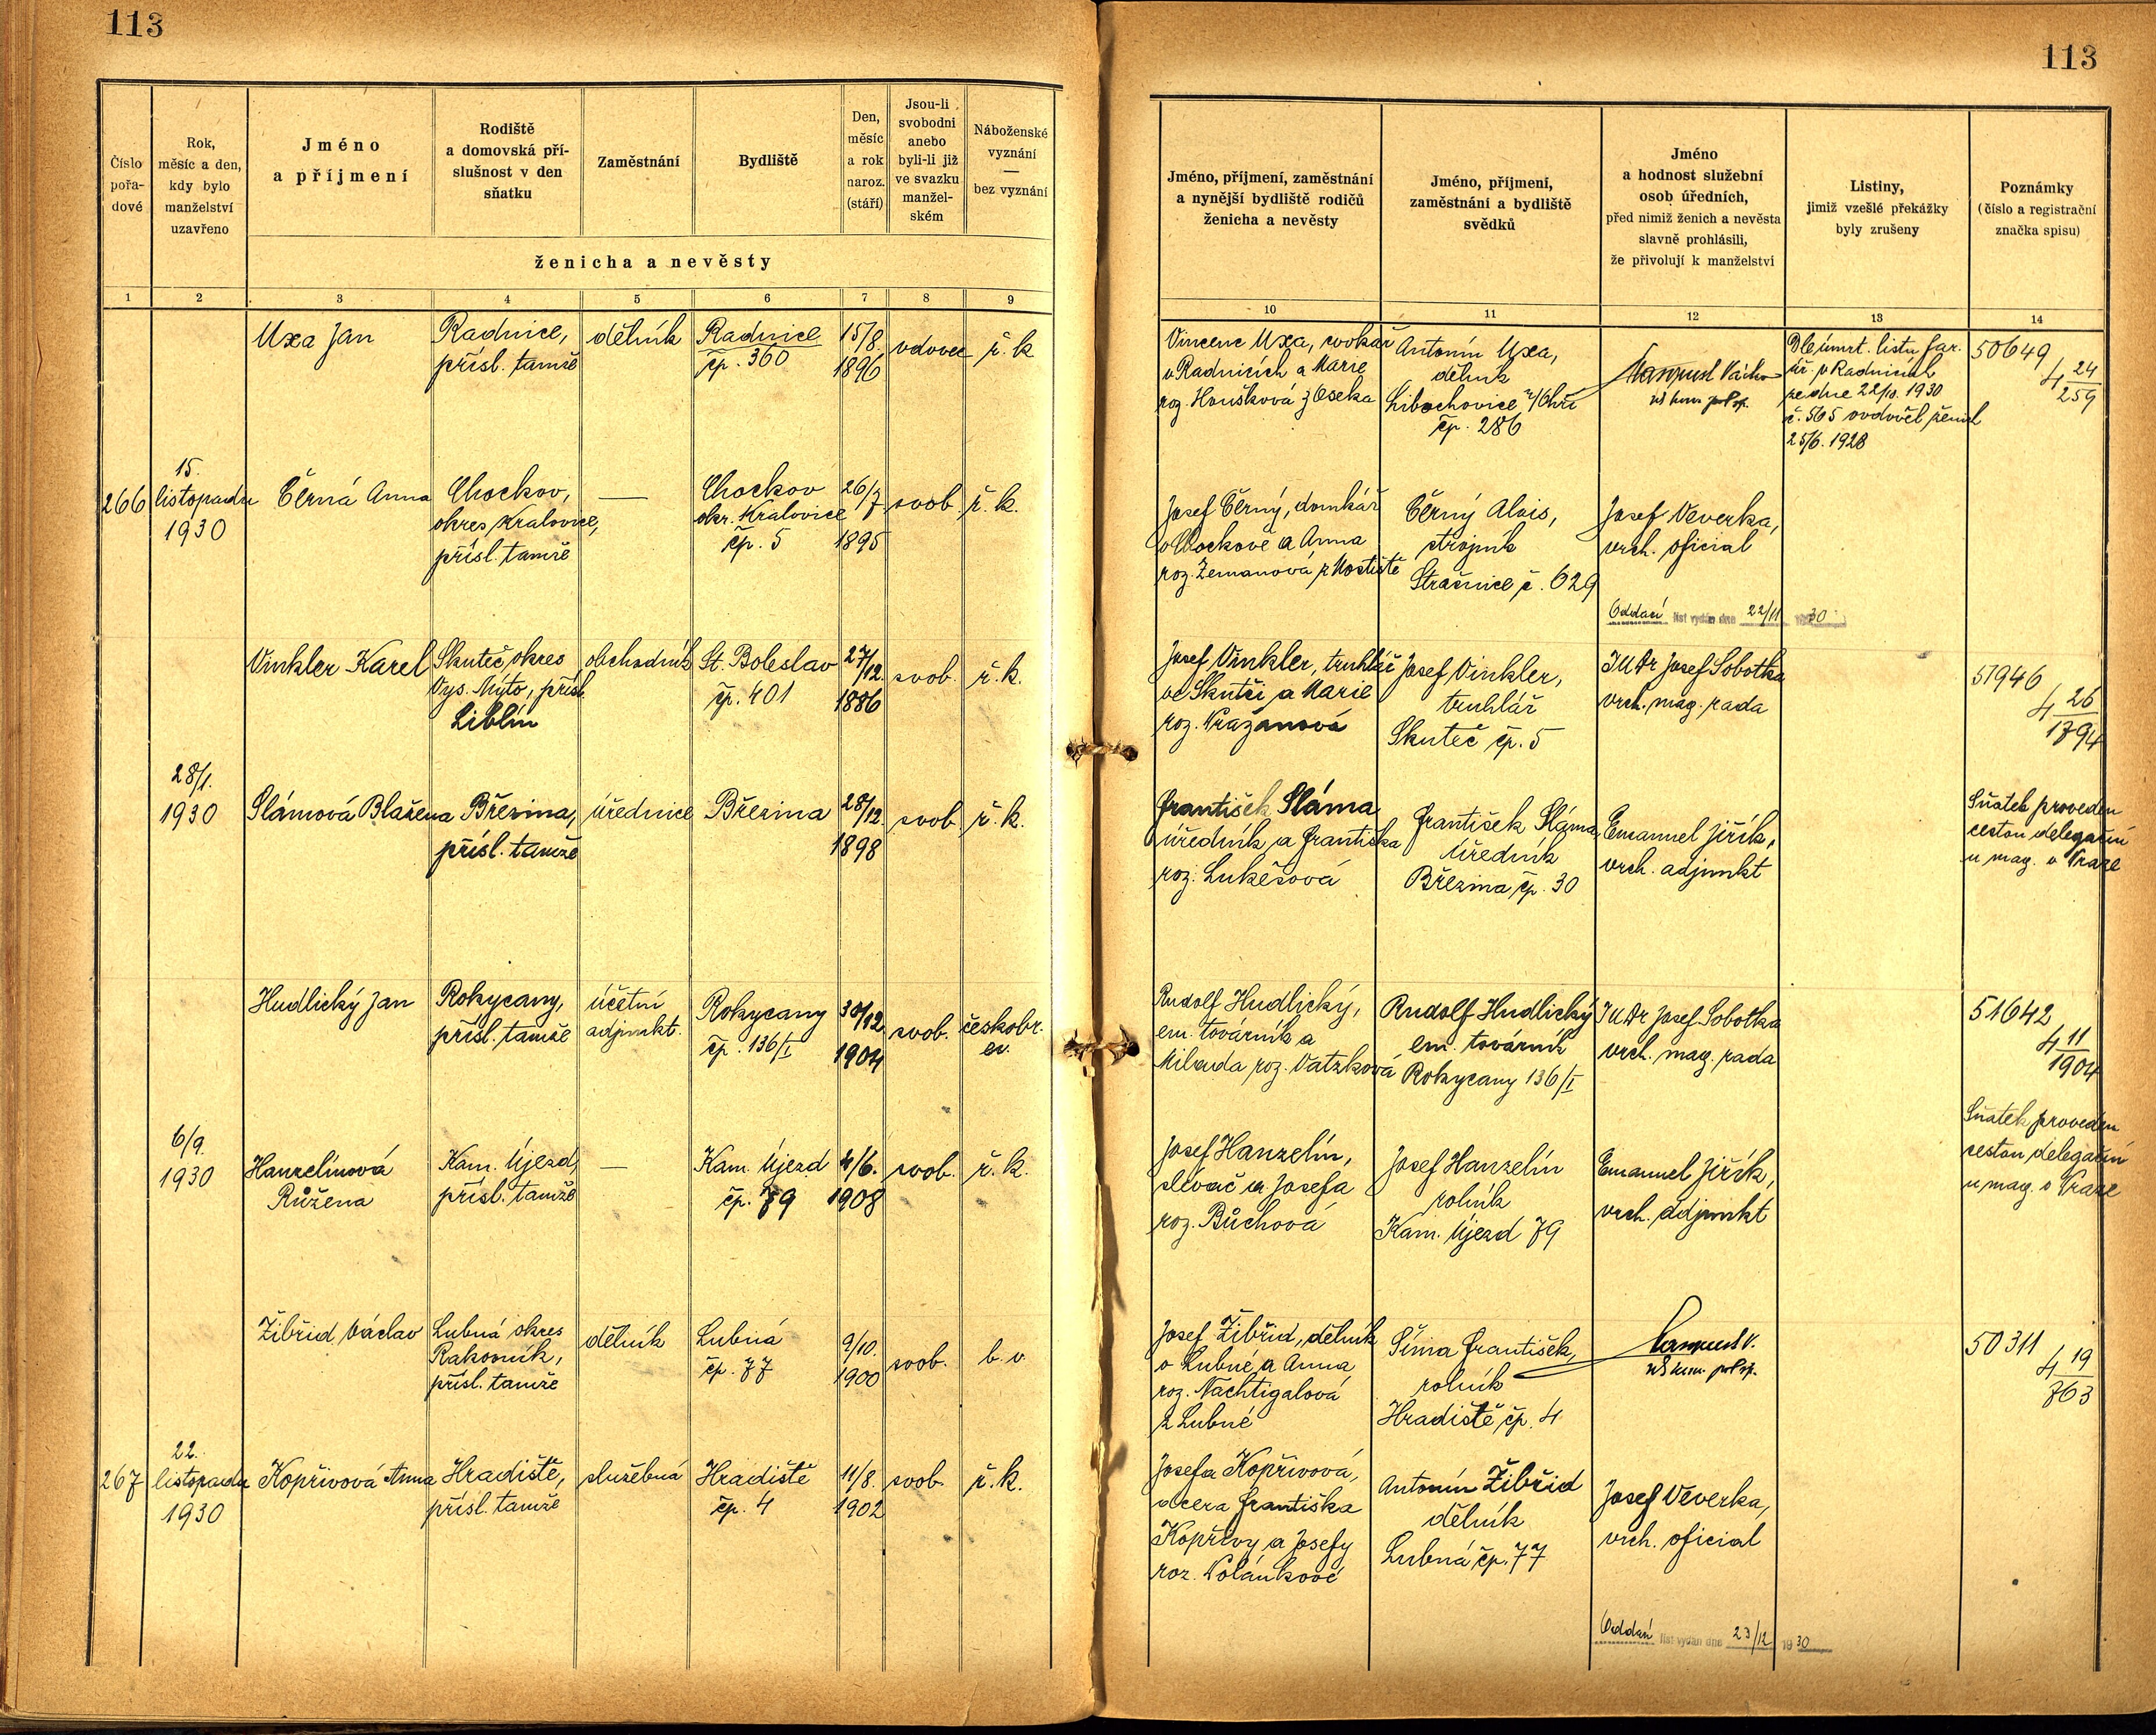 113
113
Číslo
pořa-
dové
Rok,
měsíc a den,
kdy bylo
manželství
uzavřeno
Jméno
a příjmení
Rodiště
a domovská pří-
slušnost v den
sňatku
Zaměstnání
Bydliště
Den,
měsíc
a rok
naroz.
(stáří)
Jsou-li
svobodni
anebo
byli-li již
ve svazku
manžel-
ském
Náboženské
vyznání
—
bez vyznání
ženicha a nevěsty
1 2 3 4 5 6 7 8 9
Jméno, příjmení, zaměstnání
a nynější bydliště rodičů
ženicha a nevěsty
Jméno, příjmení,
zaměstnání a bydliště
svědků
Jméno
a hodnost služební
osob úředních,
před nimiž ženich a nevěsta
slavně prohlásili,
že přivolují k manželství
Listiny,
jimiž vzešlé překážky
byly zrušeny
Poznámky
(číslo a registrační
značka spisu)
10 11 12 13 14
Uxa Jan
Radnice,
přísl. tamže
dělník
Radnice
čp. 360
15/8.
1896
vdovec
ř. k.
Vincenc Uxa, cvokař
v Radnicích a Marie
roz. Houšková z Oseka
Antonín Uxa,
dělník
Libochovice n/Ohří
čp. 286
Dle úmrt. listu far.
úř. v Radnicích
ze dne 22/10. 1930
č. 565 ovdověl ženich
25/6. 1928
50649
4 24/259
266
15.
listopadu
1930
Černá Anna
Chockov,
okres Kralovice,
přísl. tamže
—
Chockov
okr. Kralovice
čp. 5
26/7
1895
svob.
ř. k.
Josef Černý, domkář
v Chockově a Anna
roz. Zemanová z Mostiště
Černý Alois,
strojník
Strašnice č. 629
Josef Veverka,
vrch. oficial
Oddací list vydán dne 22/11 1930
Vinkler Karel
Skuteč okres
Vys. Mýto, přísl.
Liblín
obchodník
St. Boleslav
čp. 401
27/12.
1886
svob.
ř. k.
Josef Vinkler, truhlář
ve Skutči a Marie
roz.
Josef Vinkler,
truhlář
Skuteč čp. 5
JUDr Josef Sobotka
vrch. mag. rada
51946
4 26/1794
28/1.
1930
Slámová Blažena
Březina,
přísl. tamže
úřednice
Březina
28/12.
1898
svob.
ř. k.
František Sláma
úředník a Františka
roz. Lukešová
František Sláma
úředník
Březina čp. 30
Emanuel Jiřík,
vrch. adjunkt
Sňatek proveden
cestou delegační
u mag. v Praze
Hudlický Jan
Rokycany,
přísl. tamže
účetní
adjunkt.
Rokycany
čp. 136/I
30/12
1904
svob.
českobr.
ev.
Rudolf Hudlický,
em. továrník a
Milada roz. Vatzková
Rudolf Hudlický
em. továrník
Rokycany 136/I
JUDr Josef Sobotka
vrch. mag. rada
51642
4 11/1904
6/9.
1930
Hanzelínová
Růžena
Kam. Újezd,
přísl. tamže
—
Kam. Újezd
čp. 79
4/6.
1908
svob.
ř. k.
Josef Hanzelín,
slévač a Josefa
roz. Bůchová
Josef Hanzelín
rolník
Kam. Újezd 79
Emanuel Jiřík,
vrch. adjunkt
Sňatek proveden
cestou delegační
u mag. v Praze
Žibřid Václav
Lubná okres
Rakovník,
přísl. tamže
dělník
Lubná
čp. 77
9/10.
1900
svob.
b. v.
Josef Žibřid, dělník
v Lubné a Anna
roz. Nachtigalová
z Lubné
Šíma František,
rolník
Hradiště čp. 4
50311
4 19/763
267
22.
listopadu
1930
Kopřivová Anna
Hradiště,
přísl. tamže
služebná
Hradiště
čp. 4
11/8.
1902
svob.
ř. k.
Josefa Kopřivová,
dcera Františka
Kopřivy a Josefy
roz. Polánkové
Antonín Žibřid
dělník
Lubná čp. 77
Josef Veverka,
vrch. oficial
Oddací list vydán dne 23/12 1930